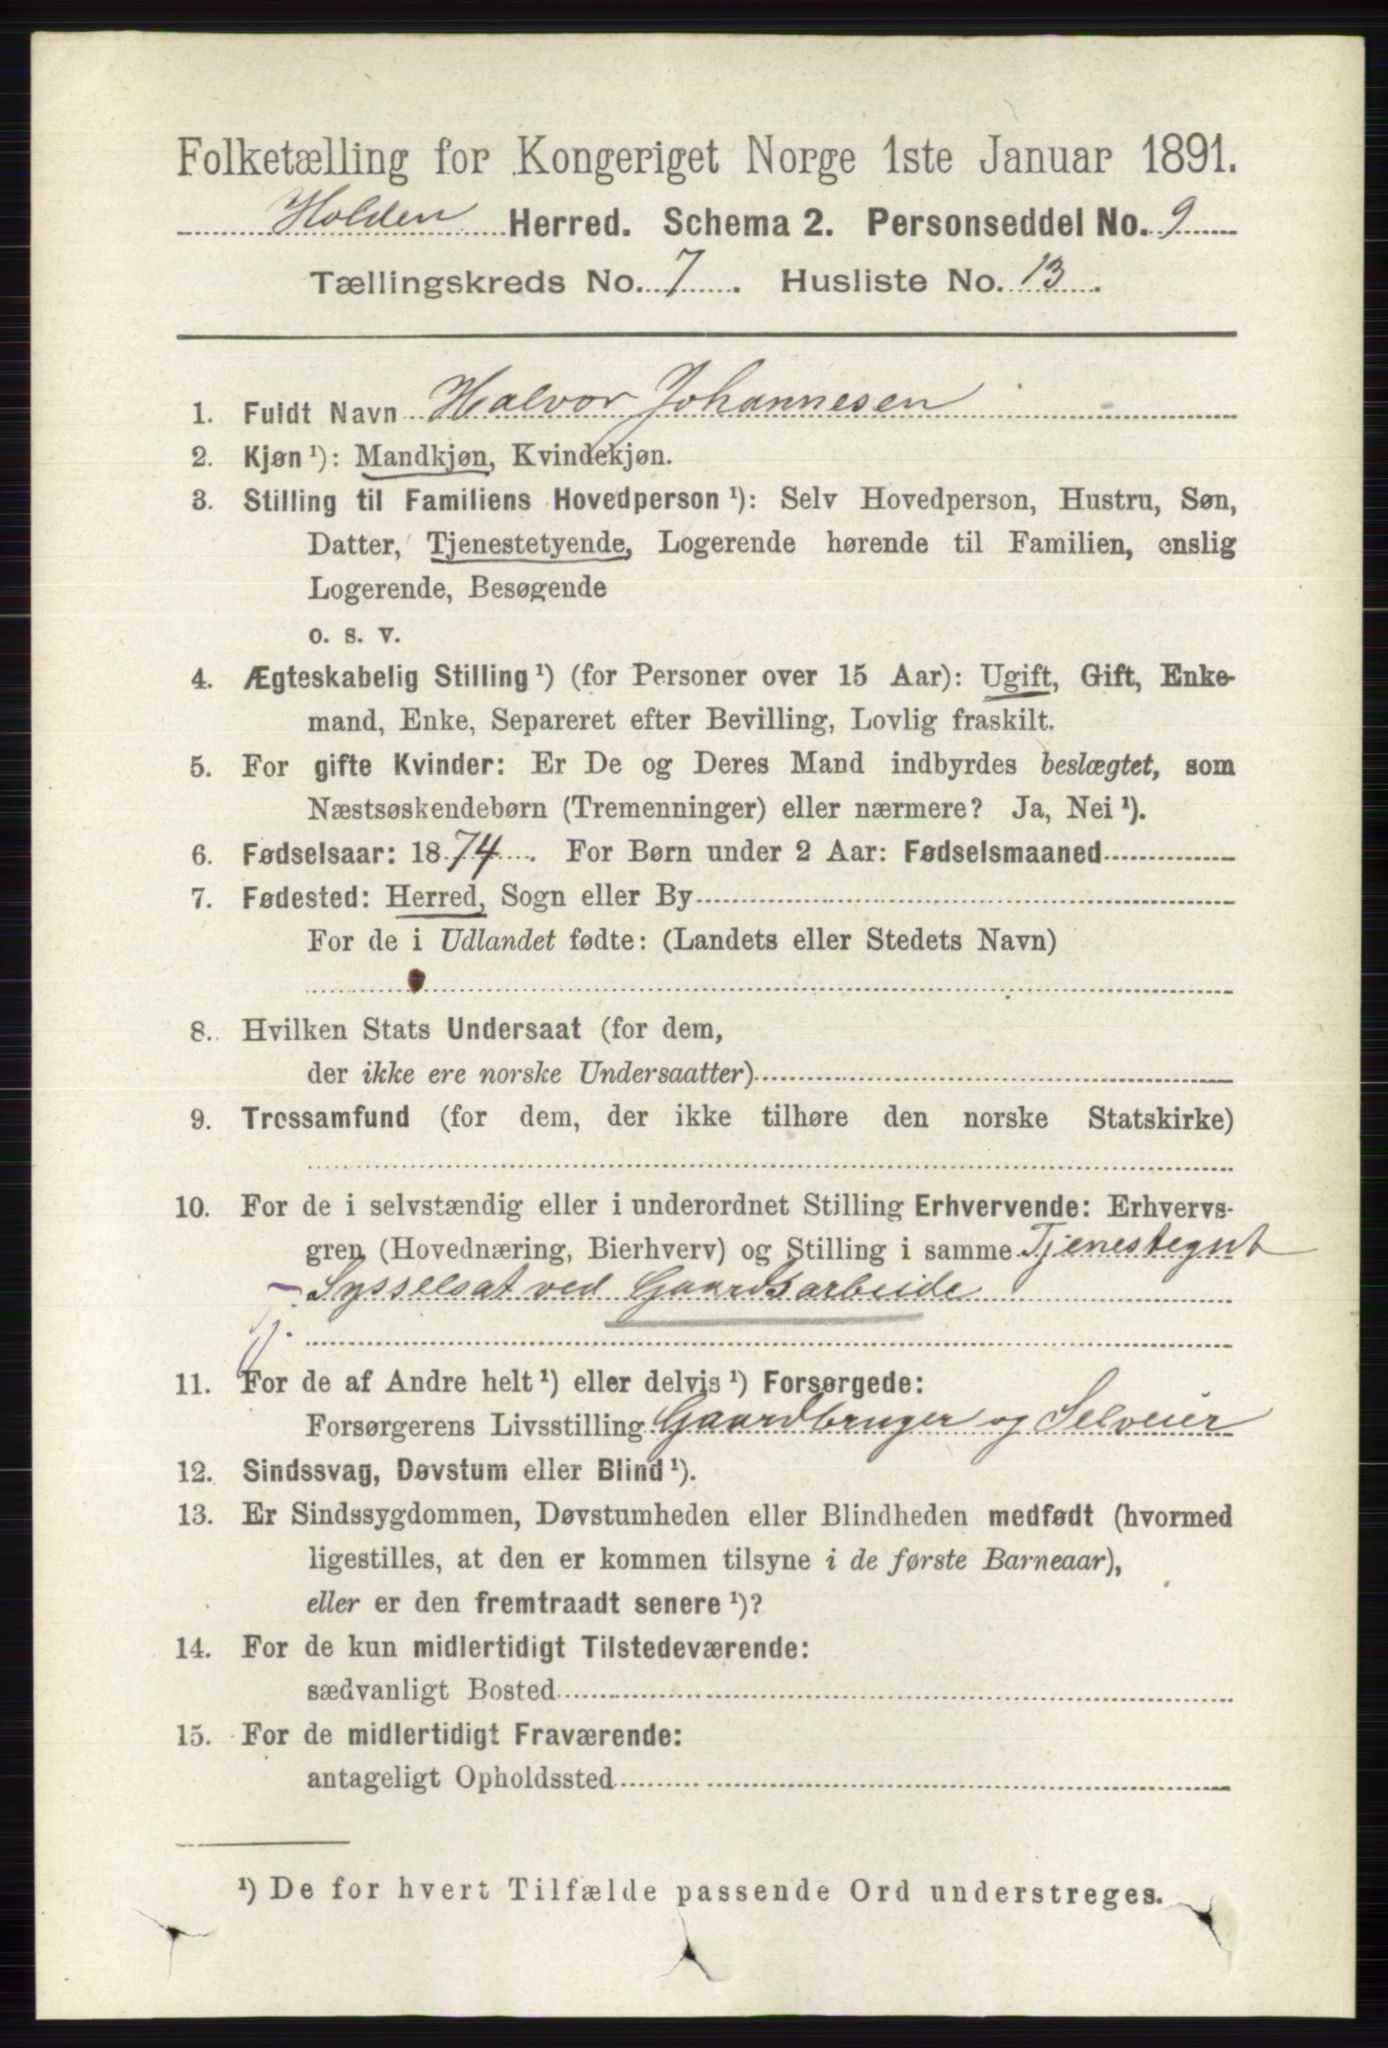 Folketælling for Kongeriget Norge 1ste Januar 1891.
Holden Herred. Schema 2. Personseddel No. 9
Tællingskreds No. 7. Husliste No. 13.
1. Fuldt Navn Halvor Johannesen
2. Kjøn ¹): Mandkjøn, Kvindekjøn.
3. Stilling til Familiens Hovedperson ¹): Selv Hovedperson, Hustru, Søn,
Datter, Tjenestetyende, Logerende hørende til Familien, enslig
Logerende, Besøgende
o. s. v.
4. Ægteskabelig Stilling ¹) (for Personer over 15 Aar): Ugift, Gift, Enke-
mand, Enke, Separeret efter Bevilling, Lovlig fraskilt.
5. For gifte Kvinder: Er De og Deres Mand indbyrdes beslægtet, som
Næstsøskendebørn (Tremenninger) eller nærmere? Ja, Nei ¹).
6. Fødselsaar: 1874. For Børn under 2 Aar: Fødselsmaaned
7. Fødested: Herred, Sogn eller By
For de i Udlandet fødte: (Landets eller Stedets Navn)
8. Hvilken Stats Undersaat (for dem,
der ikke ere norske Undersaatter)
9. Trossamfund (for dem, der ikke tilhøre den norske Statskirke)
10. For de i selvstændig eller i underordnet Stilling Erhvervende: Erhvervs-
gren (Hovednæring, Bierhverv) og Stilling i samme Tjenestegut
Sysselsat ved Gaardsarbeide
Tj.
11. For de af Andre helt ¹) eller delvis ¹) Forsørgede:
Forsørgerens Livsstilling Gaardbruger og Selveier
12. Sindssvag, Døvstum eller Blind ¹).
13. Er Sindssygdommen, Døvstumheden eller Blindheden medfødt (hvormed
ligestilles, at den er kommen tilsyne i de første Barneaar),
eller er den fremtraadt senere ¹)?
14. For de kun midlertidigt Tilstedeværende:
sædvanligt Bosted
15. For de midlertidigt Fraværende:
antageligt Opholdssted
¹) De for hvert Tilfælde passende Ord understreges.